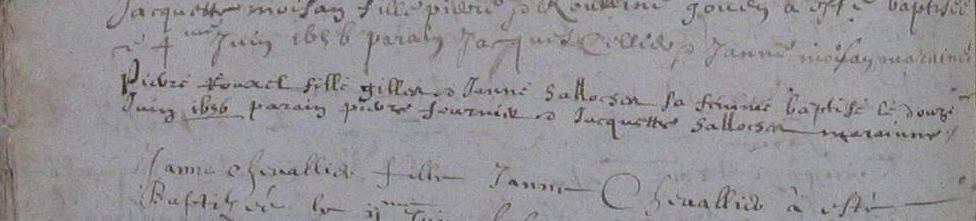 Jacquette moisan fille pierre & Roulline gouen à esté baptisée
le 4me Juin 1656 parain Jacques & Janne moisan maraine
Pierre Rouxel fille gilles & Janne Sallocher sa femme baptisé le douze
Juin 1656 parain pierre fournier & Jacquette Sallocher marainne
Janne Chevallier fille Janne Chevallier à esté
Baptizée le 11me Juin